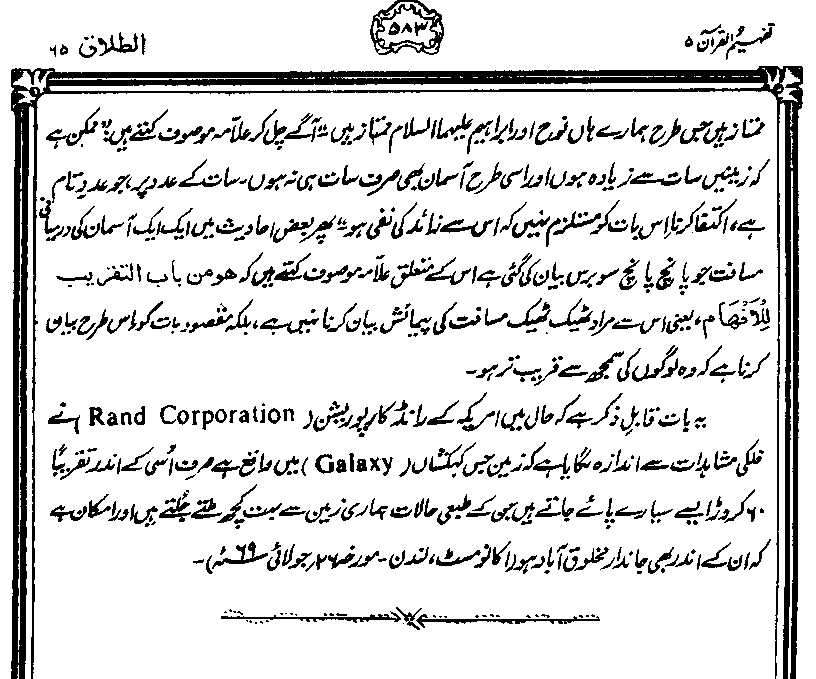 تفہیم القرآن ۵
۵۸۳
الطلاق ۶۵
ممتاز ہیں جس طرح ہمارے ہاں نوح اور ابراہیم علیہما السلام ممتاز ہیں"۔ آگے چل کر علامہ موصوف کہتے ہیں: "ممکن ہے
کہ زمینیں سات سے زیادہ ہوں اور اسی طرح آسمان بھی صرف سات ہی نہ ہوں۔ سات کے عدد پر، جو عدد تام
ہے، اکتفا کرنا اس بات کو مستلزم نہیں کہ اس سے زائد کی نفی ہو"۔ پھر بعض احادیث میں ایک ایک آسمان کی درمیانی
مسافت جو پانچ پانچ سو برس بیان کی گئی ہے اس کے متعلق علامہ موصوف کہتے ہیں کہ ھو من باب التقریب
للافھام، یعنی اس سے مراد ٹھیک ٹھیک مسافت کی پیمائش بیان کرنا نہیں ہے، بلکہ مقصود بات کو اس طرح بیان
کرنا ہے کہ وہ لوگوں کی سمجھ سے قریب تر ہو۔
یہ بات قابل ذکر ہے کہ حال میں امریکہ کے رانڈ کارپوریشن (Rand Corporation) نے
فلکی مشاہدات سے اندازہ لگایا ہے کہ زمین جس کہکشاں (Galaxy) میں واقع ہے صرف اُسی کے اندر تقریباً
۶۰ کروڑ ایسے سیارے پائے جاتے ہیں جن کے طبعی حالات ہماری زمین سے بہت کچھ ملتے جُلتے ہیں اور امکان ہے
کہ ان کے اندر بھی جاندار مخلوق آباد ہو (اکانومسٹ، لندن۔ مورخہ ۲۶ جولائی ۶۹ء)۔